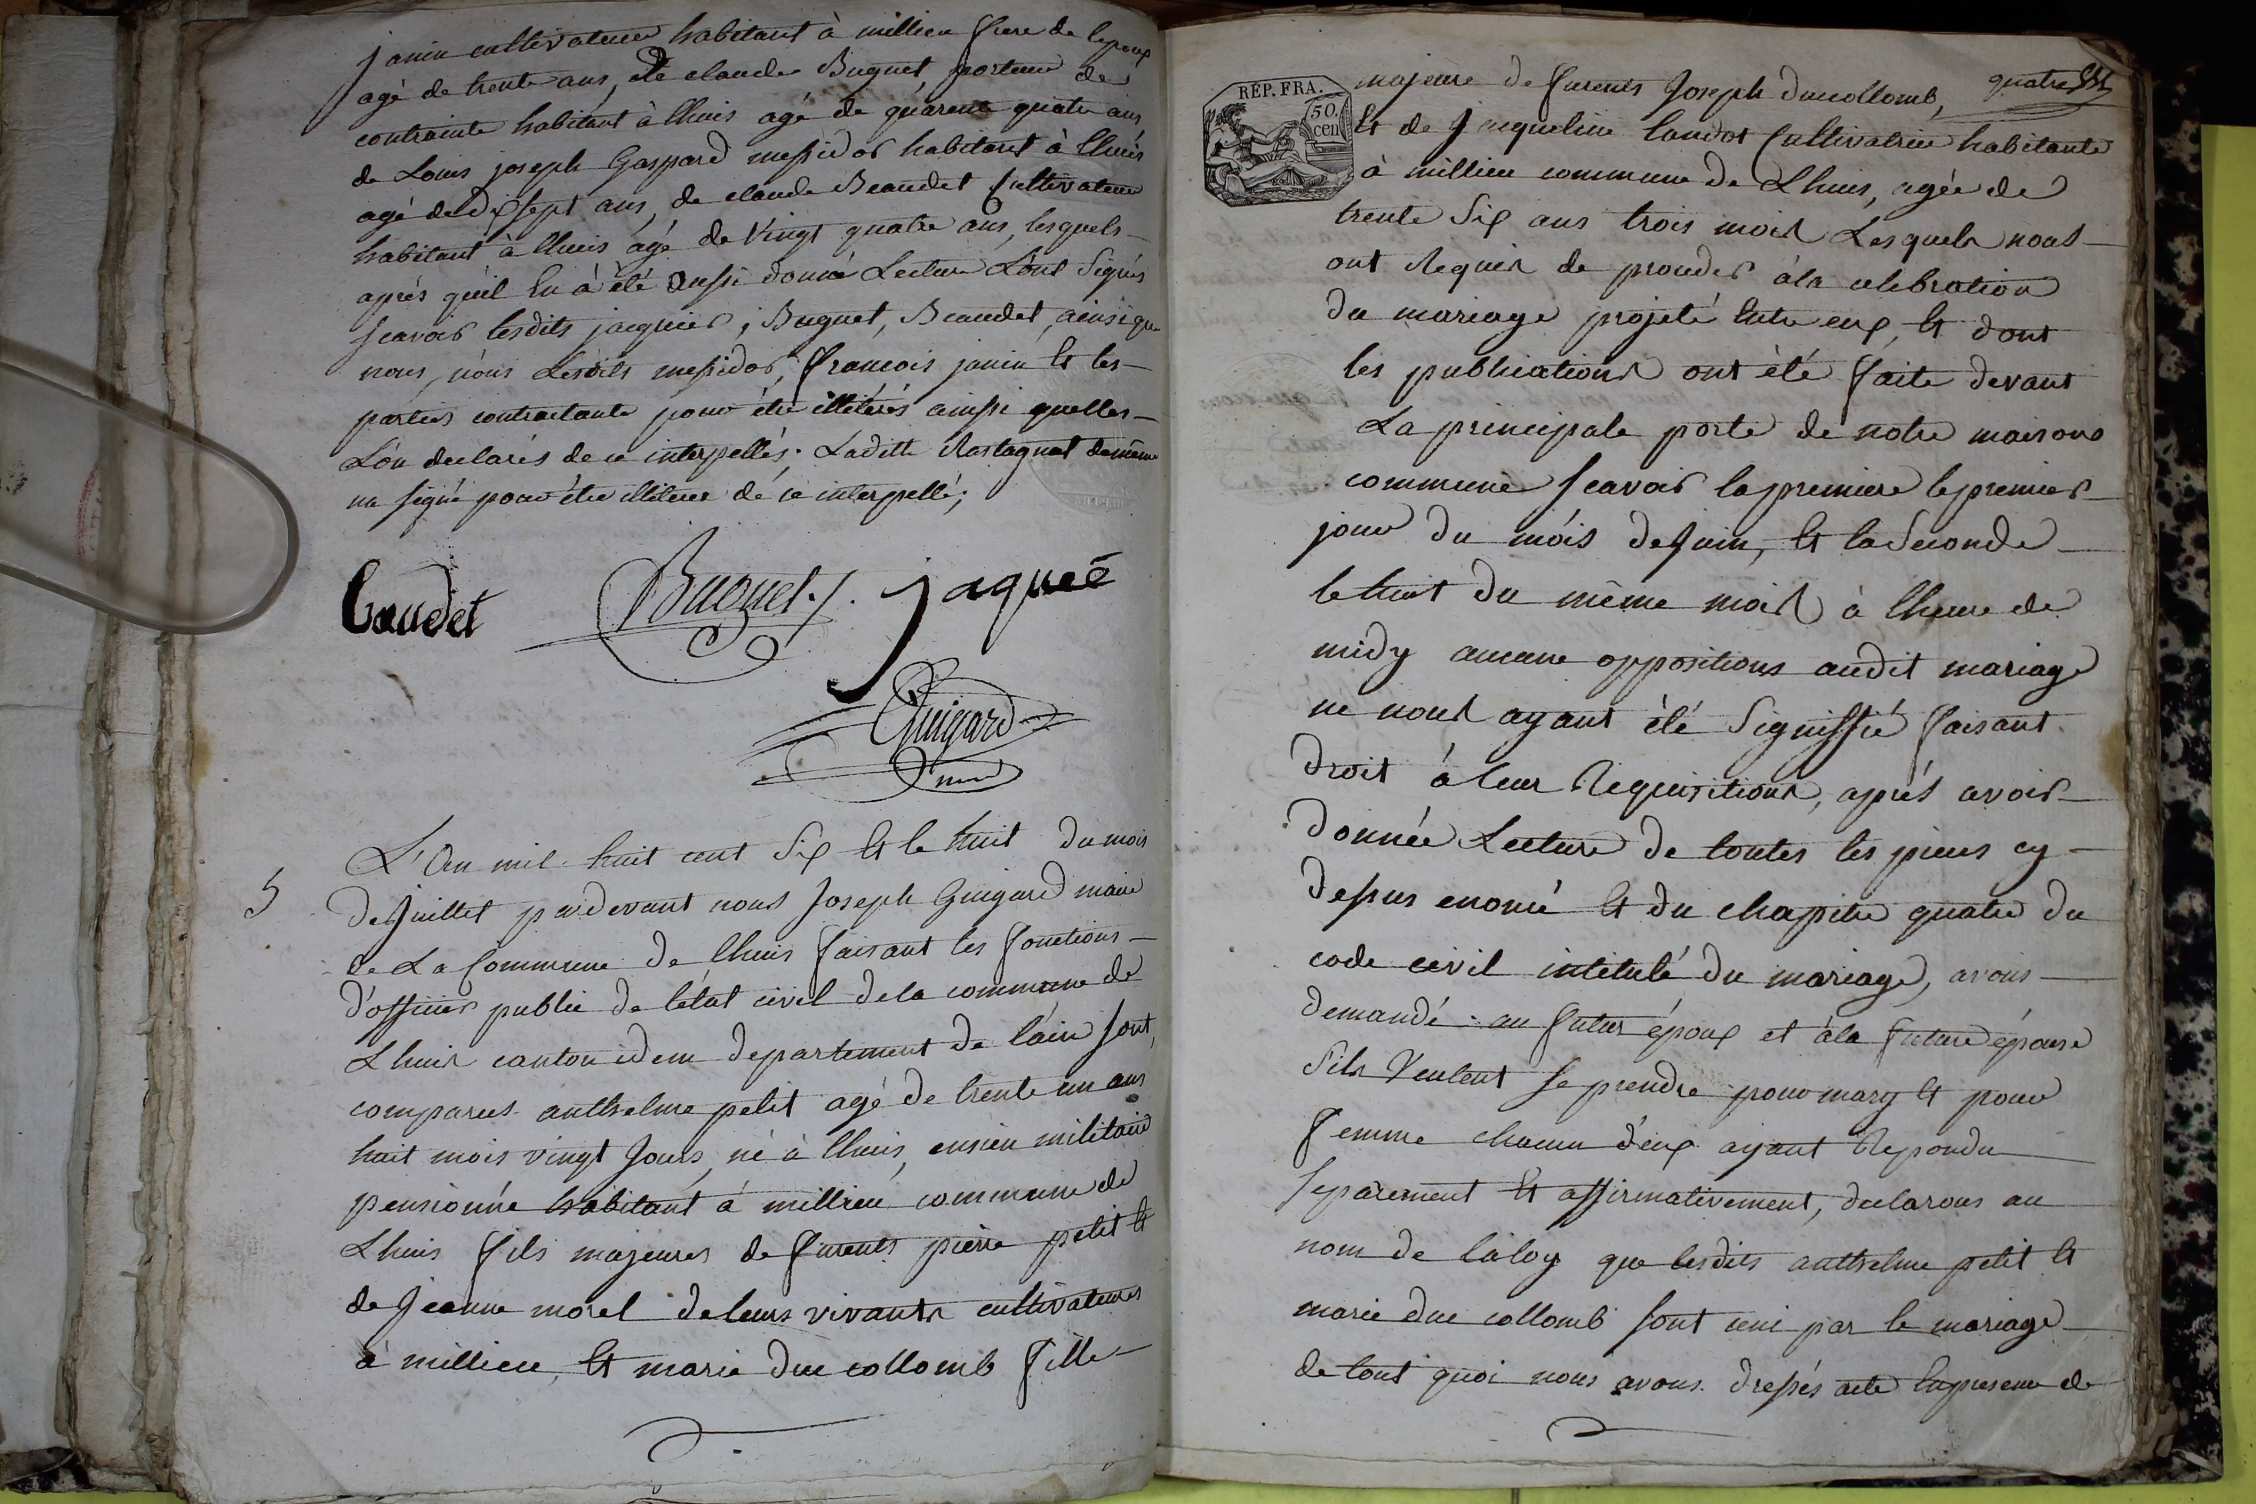 janin cultivateur habitant à millieu frere de lepoux
agé de trente ans, de claude Buguet, porteur de
contrainte habitant à lhuis agé de quarente quatre ans
de Louis joseph Gaspard messidor habitant à lhuis
agé de dixsept ans, de claude Beaudet Cultivateur
habitant à lhuis agé de Vingt quatre ans, lesquels
après qu'il lu à été aussi donné Lecture L'ont Signés
scavoir lesdits jacquier, Buguet, Beaudet, ainsi que
nous, nóns Lesdits messidor, françois janin Et les
parties contractante pour étre illitérés ainssi quelles
L'ón declarés de ce interpellés. Laditte Rostagnat demême
na signé pour étre illiterer dé ce interpellé;
baudet Buguet. jaquié
Guigard
maire
5
L'An mil huit cent Six Et le huit du mois
de Juillet pardevant nous Joseph Guigard maire
de La Commune de lhuis faisant les fonctions
d'officier public de létat civil dela commune de
Lhuis canton idem departement de láin sont,
comparus anthelme petit agé de trente un ans
huit mois vingt Jours, né à lhuis, ensien militaire
pensionné habitant à millieu commune de
Lhuis fils majeures de furents pierre petit Et
de Jeanne morel de leurs vivants cultivateurs
à millieu, Et marie duc collomb fille
REP. FRA.
50.
cen
quatre
majeure de furents Joseph Duccollomb,
Et de Jacqueline landot Cultivatrice habitante
à millieu commune de Lhuis, agée de
trente Six ans trois mois Lesquels nous
ont Requis de proceder àla celebration
du mariage projeté Entre eux, Et dont
les publications ont été faite devant
La principale porte de notre maisons
commune scavoir la premiere le premier
jour du móis de Juin, Et la Seconde
le huit du même mois à lheure de
midy aucune oppositions audit mariage
ne nous ayant été Signiffié faisant
droit à leur Requisitions, aprés avoir
donnée Lecture de toutes les pieces cy
dessus enoncé Et du chapitre quatre du
code civil intitulé du mariage, avons
demandé au futur époux et àla future épouse
Sils Veulent se prendre pour mary Et pour
femme chacun d'eux ayant Repondu
separément Et affirmativement, declarons au
nom de láloy que lesdits anthelme petit Et
marie duc collomb sont uni par le mariage
de tout quoi nous avons dressés acte Enpresence de